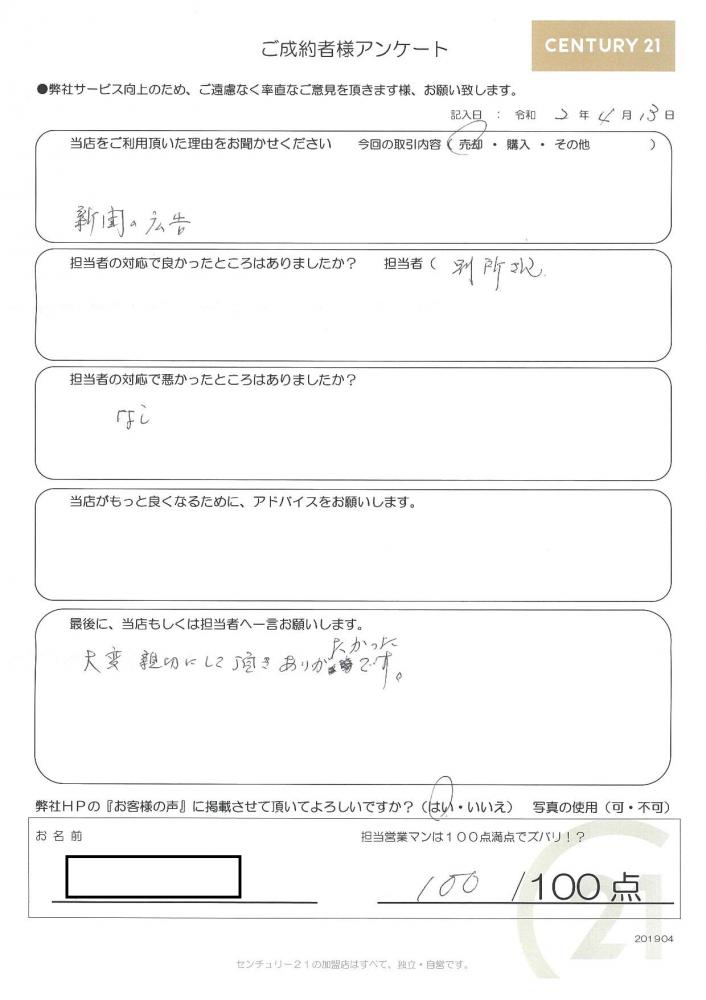 CENTURY 21
ご成約者様アンケート
●弊社サービス向上のため、ご遠慮なく率直なご意見を頂きます様、お願い致します。
記入日 : 令和 2 年 4 月 13 日
当店をご利用頂いた理由をお聞かせください 今回の取引内容 ( 売却 ・ 購入 ・ その他 )
新聞の広告
担当者の対応で良かったところはありましたか? 担当者 ( 別所さん
担当者の対応で悪かったところはありましたか?
なし
当店がもっと良くなるために、アドバイスをお願いします。
最後に、当店もしくは担当者へ一言お願いします。
大変 親切にして頂きありがたかったです。
弊社HPの『お客様の声』に掲載させて頂いてよろしいですか? (はい・いいえ) 写真の使用 (可・不可)
お 名 前
担当営業マンは100点満点でズバリ!?
100 /100点
21
201904
センチュリー21の加盟店はすべて、独立・自営です。